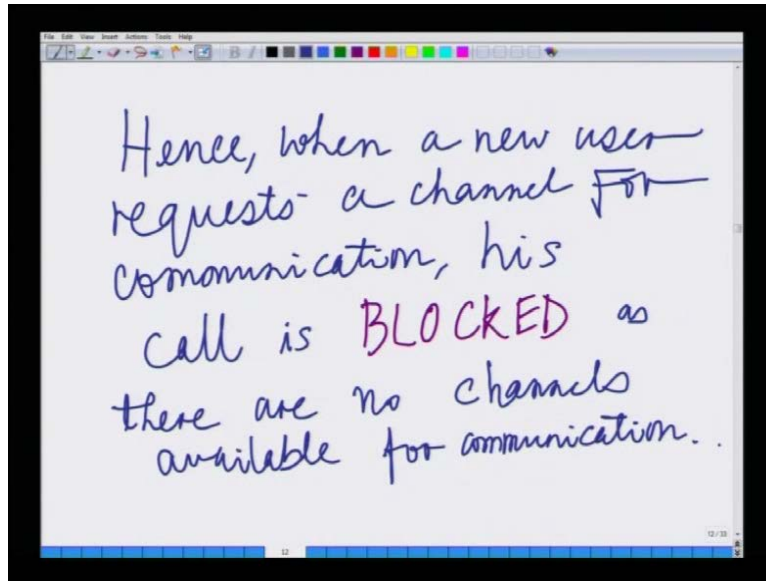 File Edit View Insert Actions Tools Help
B I
Hence, when a new user
requests a channel For
communication, his
call is BLOCKED as
there are no channels
available for communication..
12/33
12